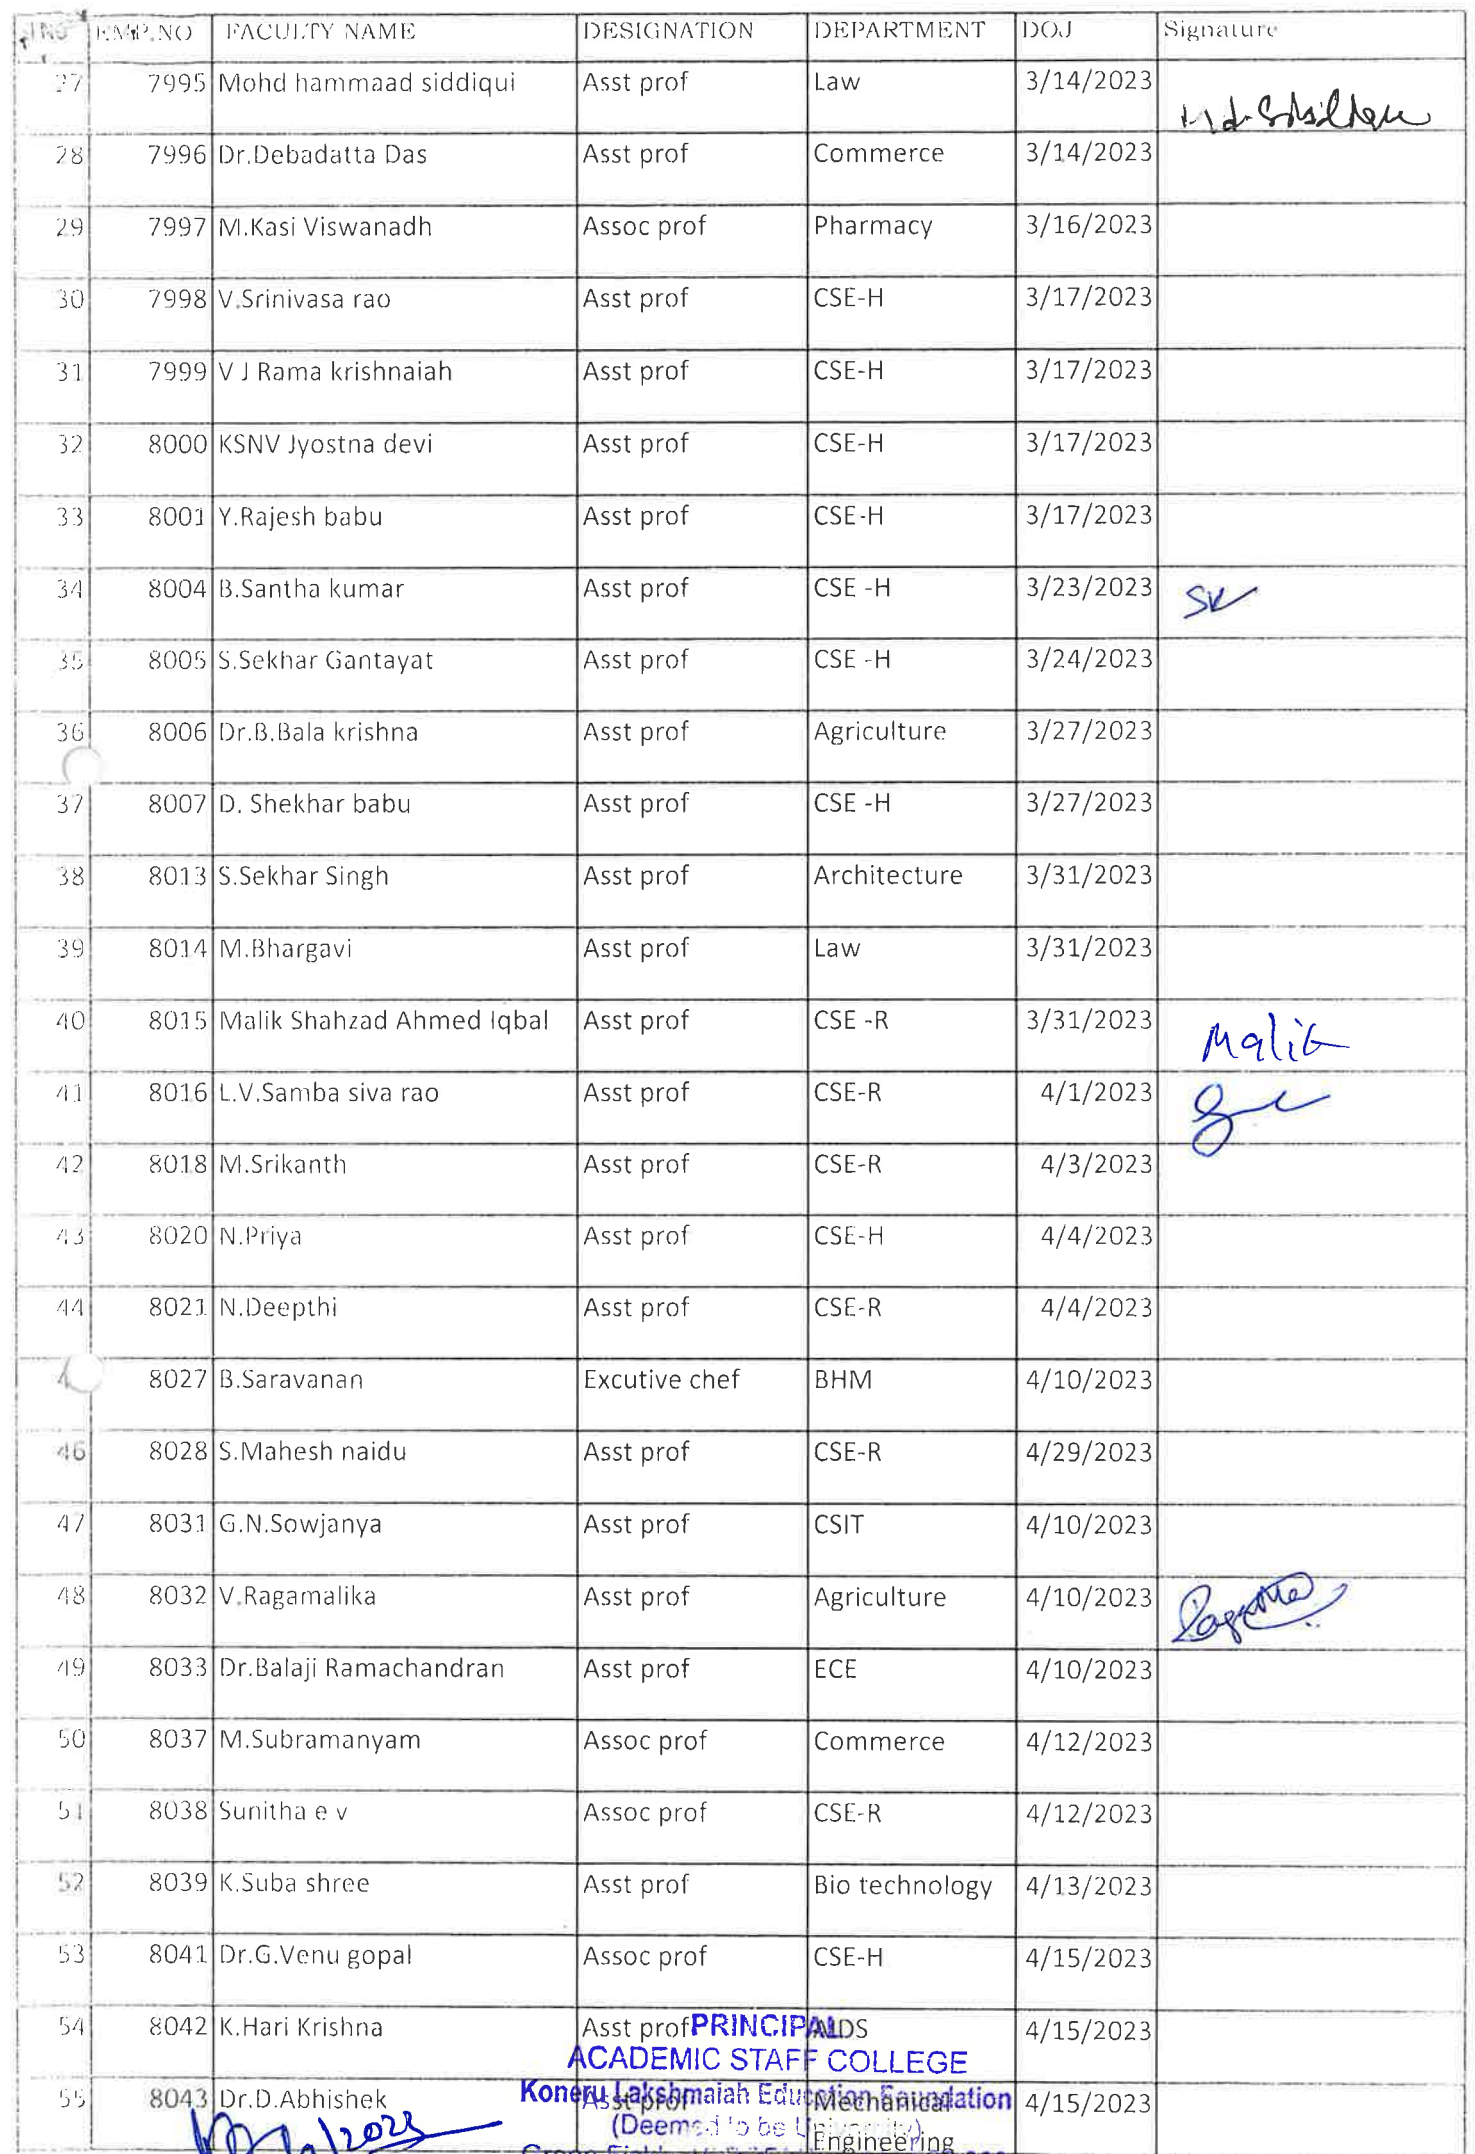 EMP.NO FACULTY NAME DESIGNATION DEPARTMENT DOJ Signature
27 7995 Mohd hammaad siddiqui Asst prof Law 3/14/2023
28 7996 Dr.Debadatta Das Asst prof Commerce 3/14/2023
29 7997 M.Kasi Viswanadh Assoc prof Pharmacy 3/16/2023
30 7998 V.Srinivasa rao Asst prof CSE-H 3/17/2023
31 7999 V J Rama krishnaiah Asst prof CSE-H 3/17/2023
32 8000 KSNV Jyostna devi Asst prof CSE-H 3/17/2023
33 8001 Y.Rajesh babu Asst prof CSE-H 3/17/2023
34 8004 B.Santha kumar Asst prof CSE -H 3/23/2023 SK
35 8005 S.Sekhar Gantayat Asst prof CSE -H 3/24/2023
36 8006 Dr.B.Bala krishna Asst prof Agriculture 3/27/2023
37 8007 D. Shekhar babu Asst prof CSE -H 3/27/2023
38 8013 S.Sekhar Singh Asst prof Architecture 3/31/2023
39 8014 M.Bhargavi Asst prof Law 3/31/2023
40 8015 Malik Shahzad Ahmed Iqbal Asst prof CSE -R 3/31/2023 Malik
41 8016 L.V.Samba siva rao Asst prof CSE-R 4/1/2023
42 8018 M.Srikanth Asst prof CSE-R 4/3/2023
43 8020 N.Priya Asst prof CSE-H 4/4/2023
44 8021 N.Deepthi Asst prof CSE-R 4/4/2023
8027 B.Saravanan Excutive chef BHM 4/10/2023
46 8028 S.Mahesh naidu Asst prof CSE-R 4/29/2023
47 8031 G.N.Sowjanya Asst prof CSIT 4/10/2023
48 8032 V.Ragamalika Asst prof Agriculture 4/10/2023
49 8033 Dr.Balaji Ramachandran Asst prof ECE 4/10/2023
50 8037 M.Subramanyam Assoc prof Commerce 4/12/2023
51 8038 Sunitha e v Assoc prof CSE-R 4/12/2023
52 8039 K.Suba shree Asst prof Bio technology 4/13/2023
53 8041 Dr.G.Venu gopal Assoc prof CSE-H 4/15/2023
54 8042 K.Hari Krishna Asst prof AIDS 4/15/2023
PRINCIPAL
ACADEMIC STAFF COLLEGE
55 8043 Dr.D.Abhishek Asst prof Mechanical Engineering 4/15/2023
Koneru Lakshmaiah Education Foundation
(Deemed to be University)